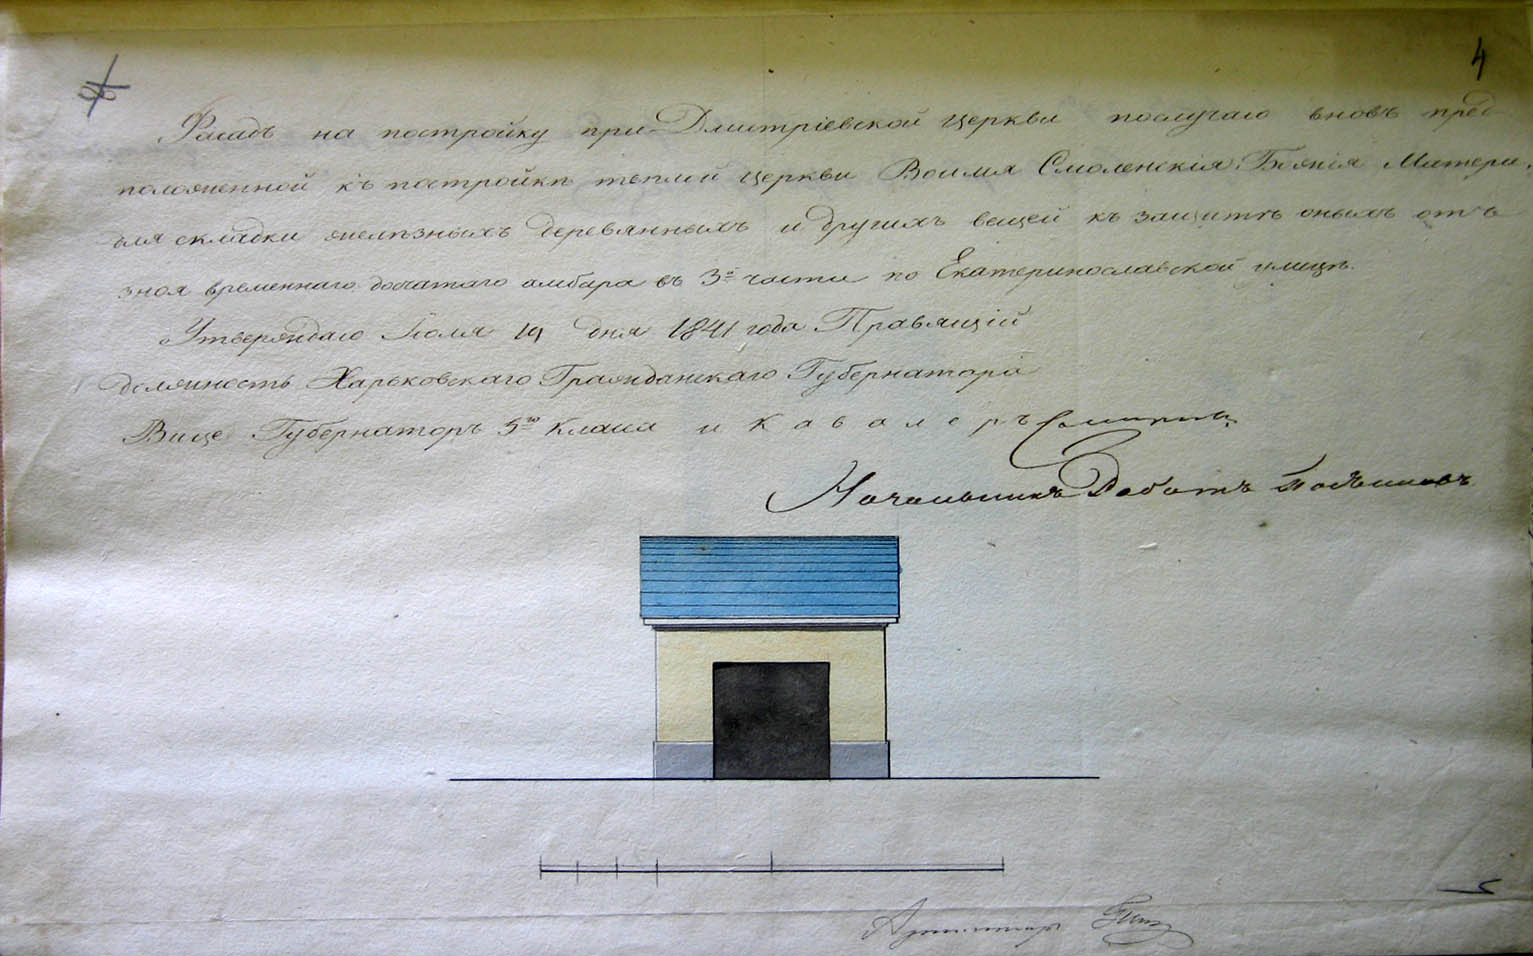 4
Фасадъ на постройку при Дмитріевской церкви послучаю вновь пред-
положенной къ постройке теплой церкви Воимя Смоленскія Божія Матери,
для складки железныхъ деревянныхъ и другихъ вещей къ защитѣ оныхъ отъ
зноя временнаго досчатаго амбара въ 3й части по Екатеринославской улицѣ.
Утверждаю Іюля 19 дня 1841 года Правящій
должность Харьковскаго Гражданскаго Губернатора
Вице Губернаторъ 5го Класа и Кавалеръ
Начальникъ
Архитекторъ